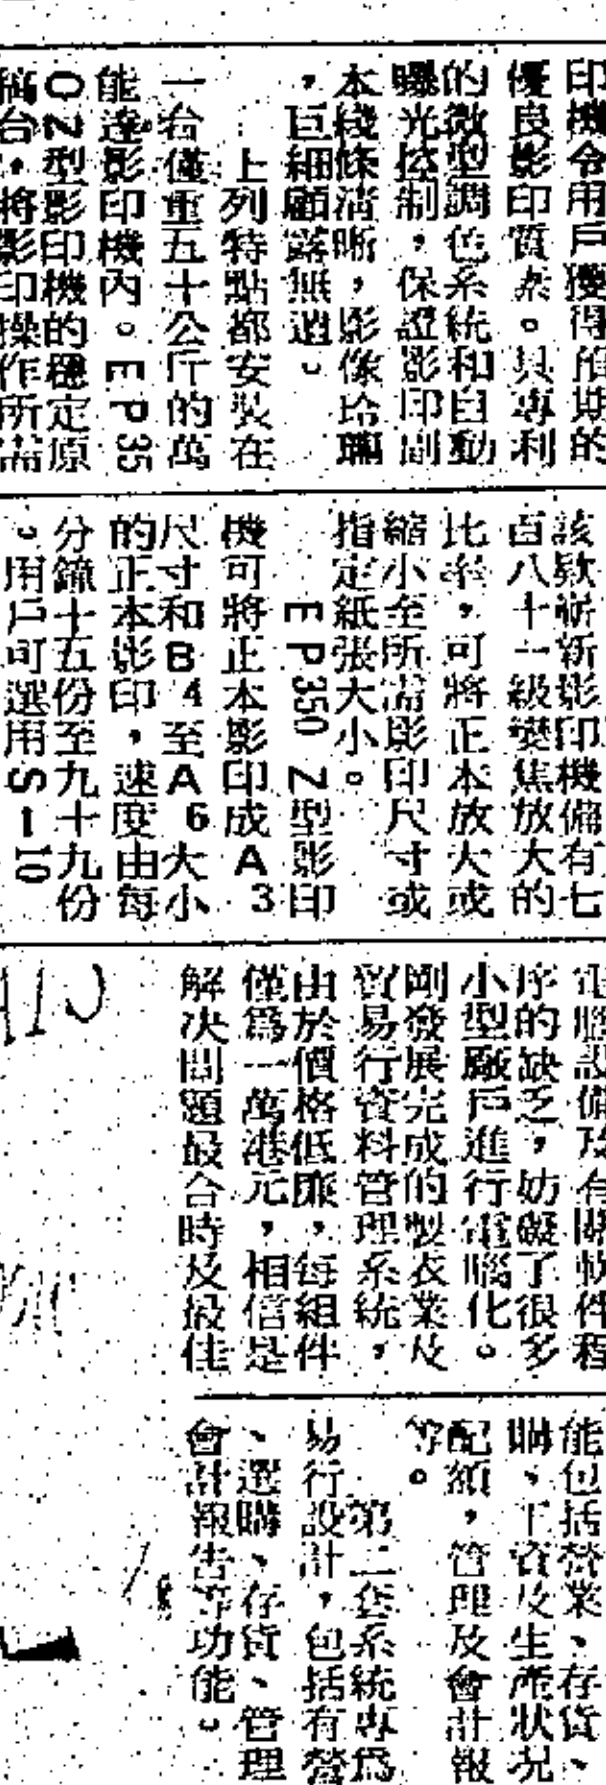 印機令用戶獲得預期的
優良影印質素。其專利
的微型調色系統和自動
曝光控制，保證影印副
本綫條清晰，影像玲瓏
，巨細顧露無遺。
上列特點都安裝在
一台僅重五十公斤的萬
能達影印機內。EP35
0Z型影印機的穩定原
稿台，將影印操作所需
該欵嶄新影印機備有七
百八十一級變焦放大的
比率，可將正本放大或
縮小至所需影印尺寸或
指定紙張大小。
EP350 Z型影印
機可將正本影印成A3
尺寸和B4至A6大小
的正本影印，速度由每
分鐘十五份至九十九份
。用戶可選用S-10
電腦設備及有關軟件程
序的缺乏，妨礙了很多
小型廠戶進行電腦化。
剛發展完成的製衣業及
貿易行資料管理系統，
由於價格低廉，每組件
僅爲一萬港元，相信是
解决問題最合時及最佳
能包括營業、存貨、
購、工資及生產狀況、
配額，管理及會計報
等。
第二套系統專爲
易行設計，包括有營
、選購、存貨、管理
會計報告等功能。